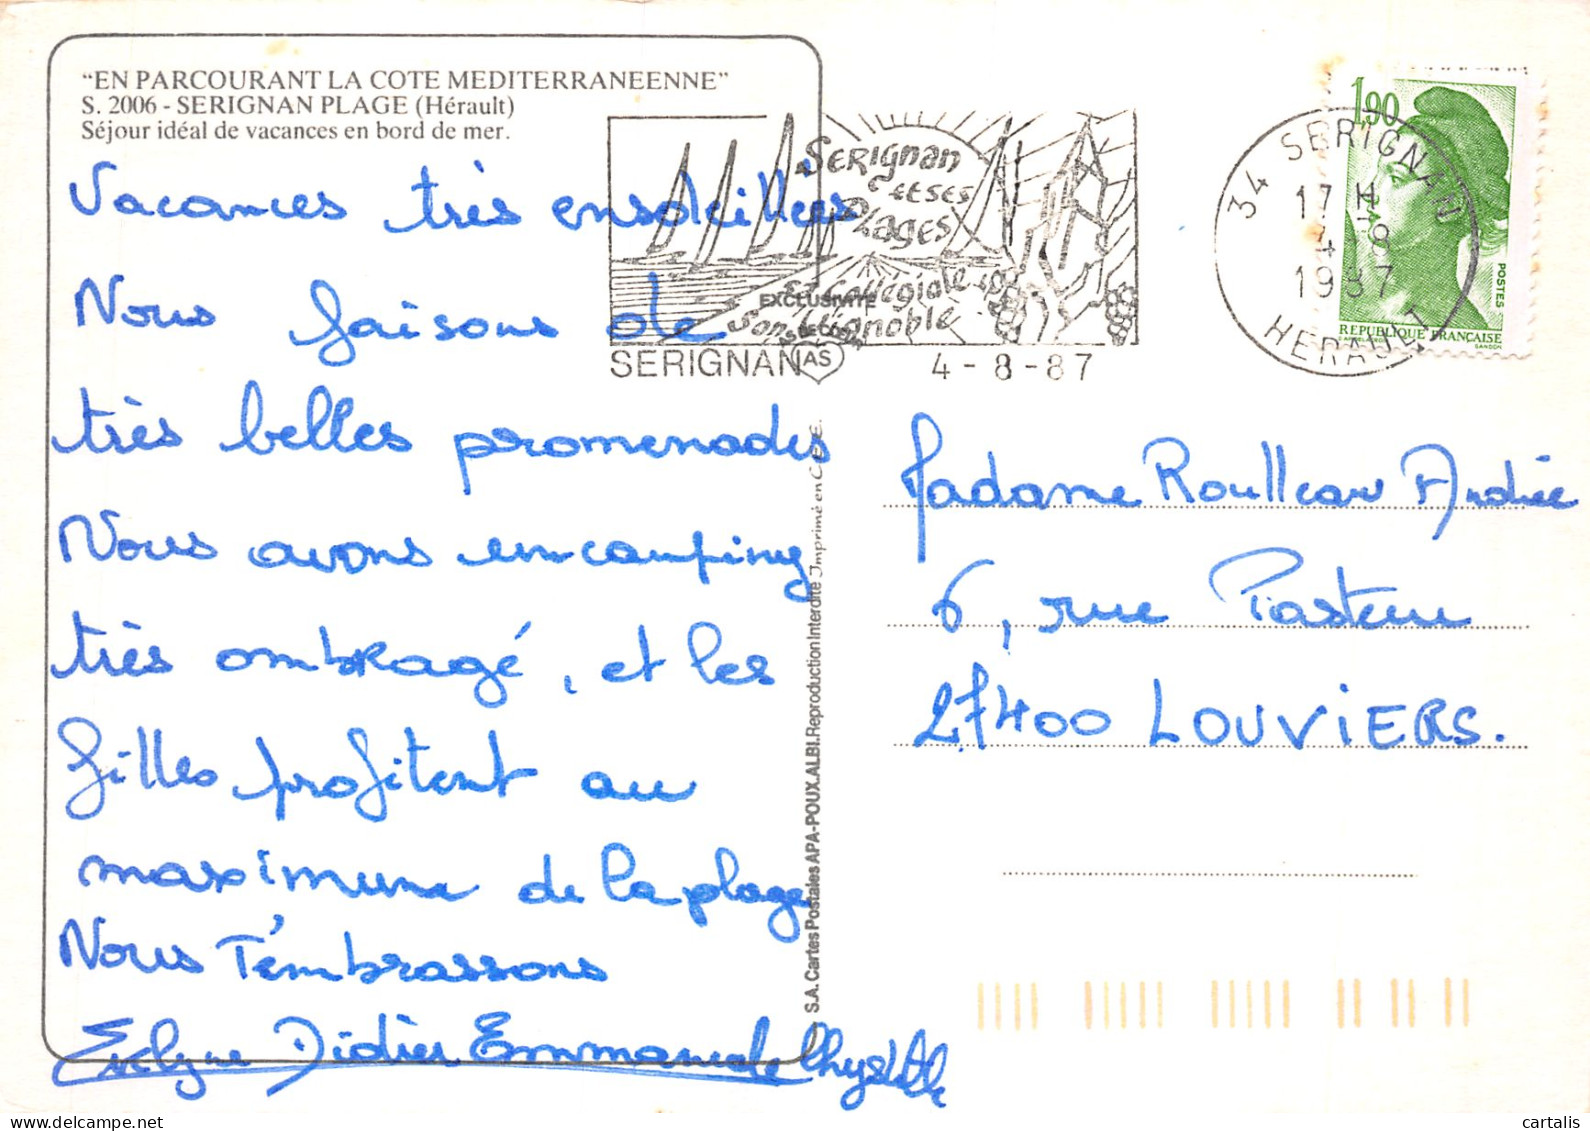 "EN PARCOURANT LA COTE MEDITERRANEENNE"
S. 2006 - SERIGNAN PLAGE (Hérault)
Séjour idéal de vacances en bord de mer.
Vacances très ensoleillées
Nous faisons de
très belles promenades
Nous avons un camping
très ombragé, et les
filles profitent au
maximum de la plage
Nous T'embrassons
Evelyne Didier Emmanuelle
SERIGNAN
ET SES
PLAGES
Sa Collégiale
Son Vignoble
SERIGNAN
4-8-87
EXCLUSIVITE
AS
S.A. Cartes Postales APA-POUX. ALBI. Reproduction Interdite Imprimé en C.E.E.
34 SERIGNAN
17 H
4-8
1987
HERAULT
1,90
POSTES
REPUBLIQUE FRANÇAISE
GANDON
Madame Roulleau Andrée
6, rue Pasteur
27400 LOUVIERS.
cartalis